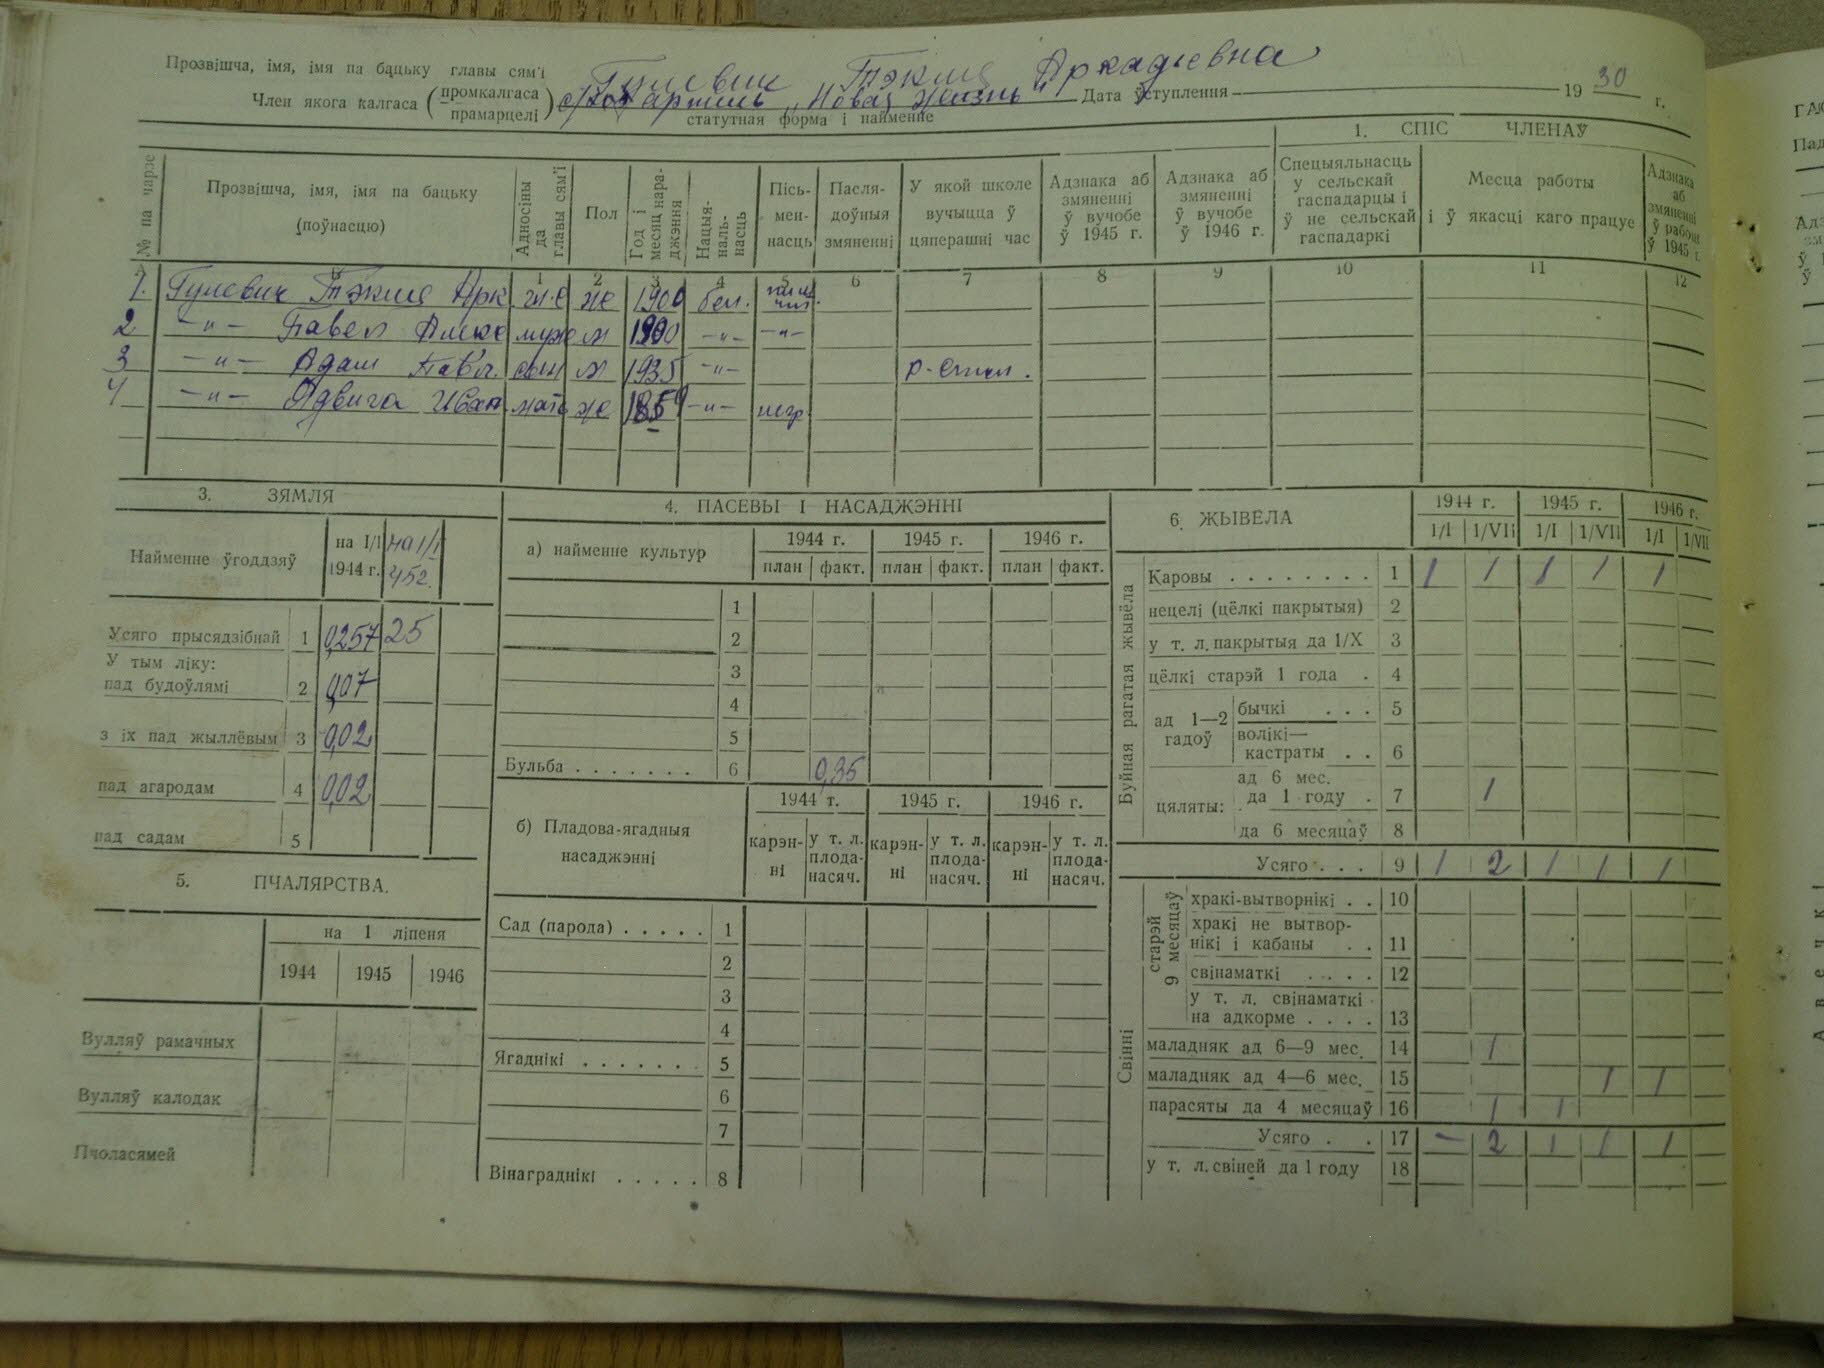 Прозвішча, імя, імя па бацьку главы сям'і Гулевич Тэкля Аркадьевна
Член якога калгаса (промкалгаса прамарцелі) с/хоз артель „Новая Жизнь" Дата ўступлення 1930 г.
статутная форма і найменне
1. СПІС ЧЛЕНАЎ
№ па чарзе
Прозвішча, імя, імя па бацьку (поўнасцю)
Адносіны да главы сям'і
Пол
Год і месяц нараджэння
Нацыянальнасць
Пісьменнасць
Паслядоўныя змяненні
У якой школе вучыцца ў цяперашні час
Адзнака аб змяненні ў вучобе ў 1945 г.
Адзнака аб змяненні ў вучобе ў 1946 г.
Спецыяльнасць у сельскай гаспадарцы і ў не сельскай гаспадаркі
Месца работы і ў якасці каго працуе
Адзнака аб змяненні ў рабоце ў 1945 г.
1 2 3 4 5 6 7 8 9 10 11 12
1. Гулевич Тэкля Арк ж 1900 бел.
2 -"- Павел муж м 1900 -"- -"-
3 -"- Адам Павл. сын м 1935 -"-
4 -"- Ядвига Иван мать ж -"- негр
3. ЗЯМЛЯ
Найменне ўгоддзяў
на 1/I 1944 г.
на 1/I 452.
Усяго прысядзібнай 1 0,257 25
У тым ліку:
пад будоўлямі 2 0,07
з іх пад жыллёвым 3 0,02
пад агародам 4 0,02
пад садам 5
5. ПЧАЛЯРСТВА.
на 1 ліпеня
1944 1945 1946
Вулляў рамачных
Вулляў калодак
Пчоласямей
4. ПАСЕВЫ І НАСАДЖЭННІ
а) найменне культур
1944 г. 1945 г. 1946 г.
план факт. план факт. план факт.
1
2
3
4
5
Бульба . . . . . . . 6 0,35
б) Пладова-ягадныя насаджэнні
1944 г. 1945 г. 1946 г.
карэнні у т. л. плоданасяч. карэнні у т. л. плоданасяч. карэнні у т. л. плоданасяч.
Сад (парода) . . . . . 1
2
3
4
Ягаднікі . . . . . . . 5
6
7
Вінаграднікі . . . . . 8
6. ЖЫВЕЛА
1944 г. 1945 г. 1946 г.
1/I 1/VII 1/I 1/VII 1/I 1/VII
Буйная рагатая жывёла
Каровы . . . . . . . . 1 1 1 1 1 1
нецелі (цёлкі пакрытыя) 2
у т. л. пакрытыя да 1/X 3
цёлкі старэй 1 года . 4
ад 1—2 гадоў
бычкі . . . 5
волікі—кастраты . . 6
цяляты:
ад 6 мес. да 1 году . 7 1
да 6 месяцаў 8
Усяго . . . 9 1 2 1 1 1
Свінні
старэй 9 месяцаў
хракі-вытворнікі . . 10
хракі не вытворнікі і кабаны . . 11
свінаматкі . . . . 12
у т. л. свінаматкі на адкорме . . . . 13
маладняк ад 6—9 мес. 14 1
маладняк ад 4—6 мес. 15 1 1
парасяты да 4 месяцаў 16 1 1
Усяго . . 17 - 2 1 1 1
у т. л. свіней да 1 году 18